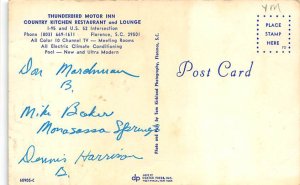 THUNDERBIRD MOTOR INN
COUNTRY KITCHEN RESTAURANT and LOUNGE
I-95 and U.S. 52 Intersection
Phone (803) 669-1611 Florence, S.C. 29501
All Color 10 Channel TV — Meeting Rooms
All Electric Climate Conditioning
Pool — New and Ultra Modern
Don
B.
Mike Baker
Monassassa Springs
Dennis Harrison
B.
60905-C
Photo and Pub. by Tom Kirkland Photography, Florence, S.C.
Post Card
PLACE
STAMP
HERE
dp